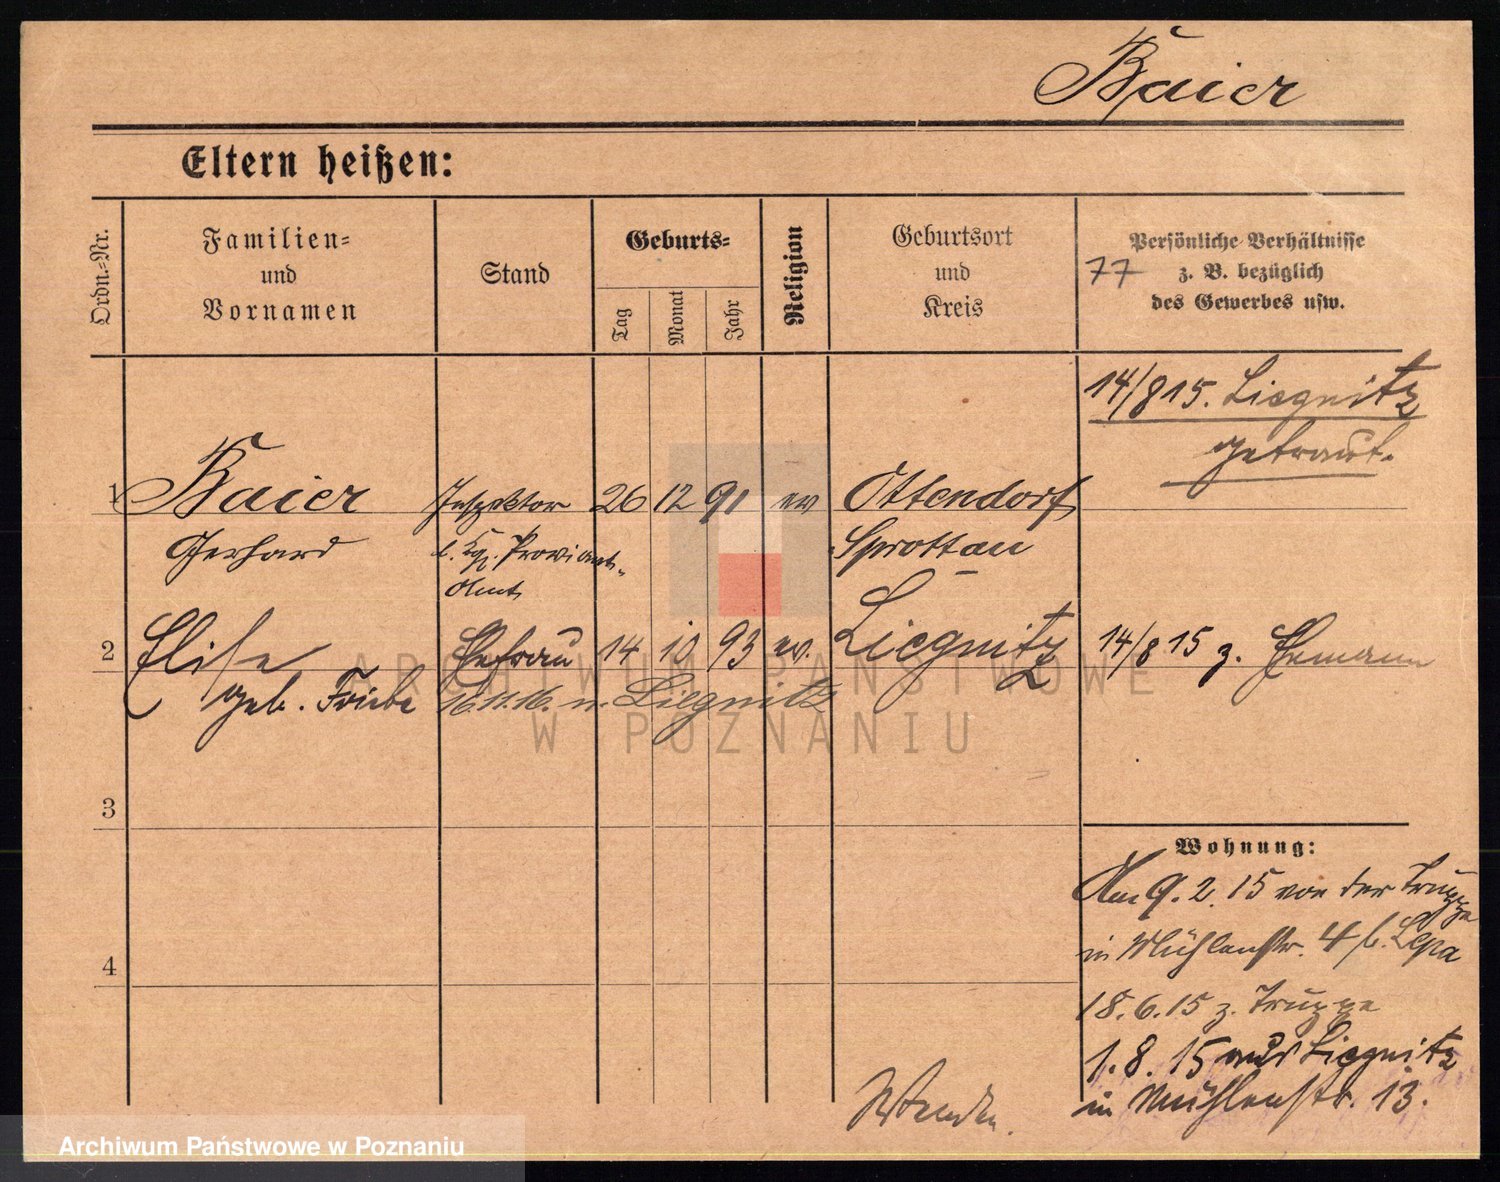 Baier
Eltern heißen:
Ordn.-Nr.
Familien-
und
Vornamen
Stand
Geburts-
Tag
Monat
Jahr
Religion
Geburtsort
und
Kreis
Persönliche Verhältnisse
z. B. bezüglich
des Gewerbes usw.
77
14/8 15. Liegnitz
getraut.
1 Baier Inspektor 26 12 91 ev Ottendorf
Gerhard b. Kgl. Proviant- Sprottau
Amt
2 Elise Ehefrau 14 10 93 ev. Liegnitz 14/8 15 z. Ehemann
geb. Friebe 16.11.16. n. Liegnitz
3
4
Wohnung:
Am 9.2.15 von der Truppe
in Mühlenstr. 4 b. Lepa
18.6.15 z. Truppe
1.8.15 aus Liegnitz
in Mühlenstr. 13.
Wenden.
ARCHIWUM PAŃSTWOWE
W POZNANIU
Archiwum Państwowe w Poznaniu